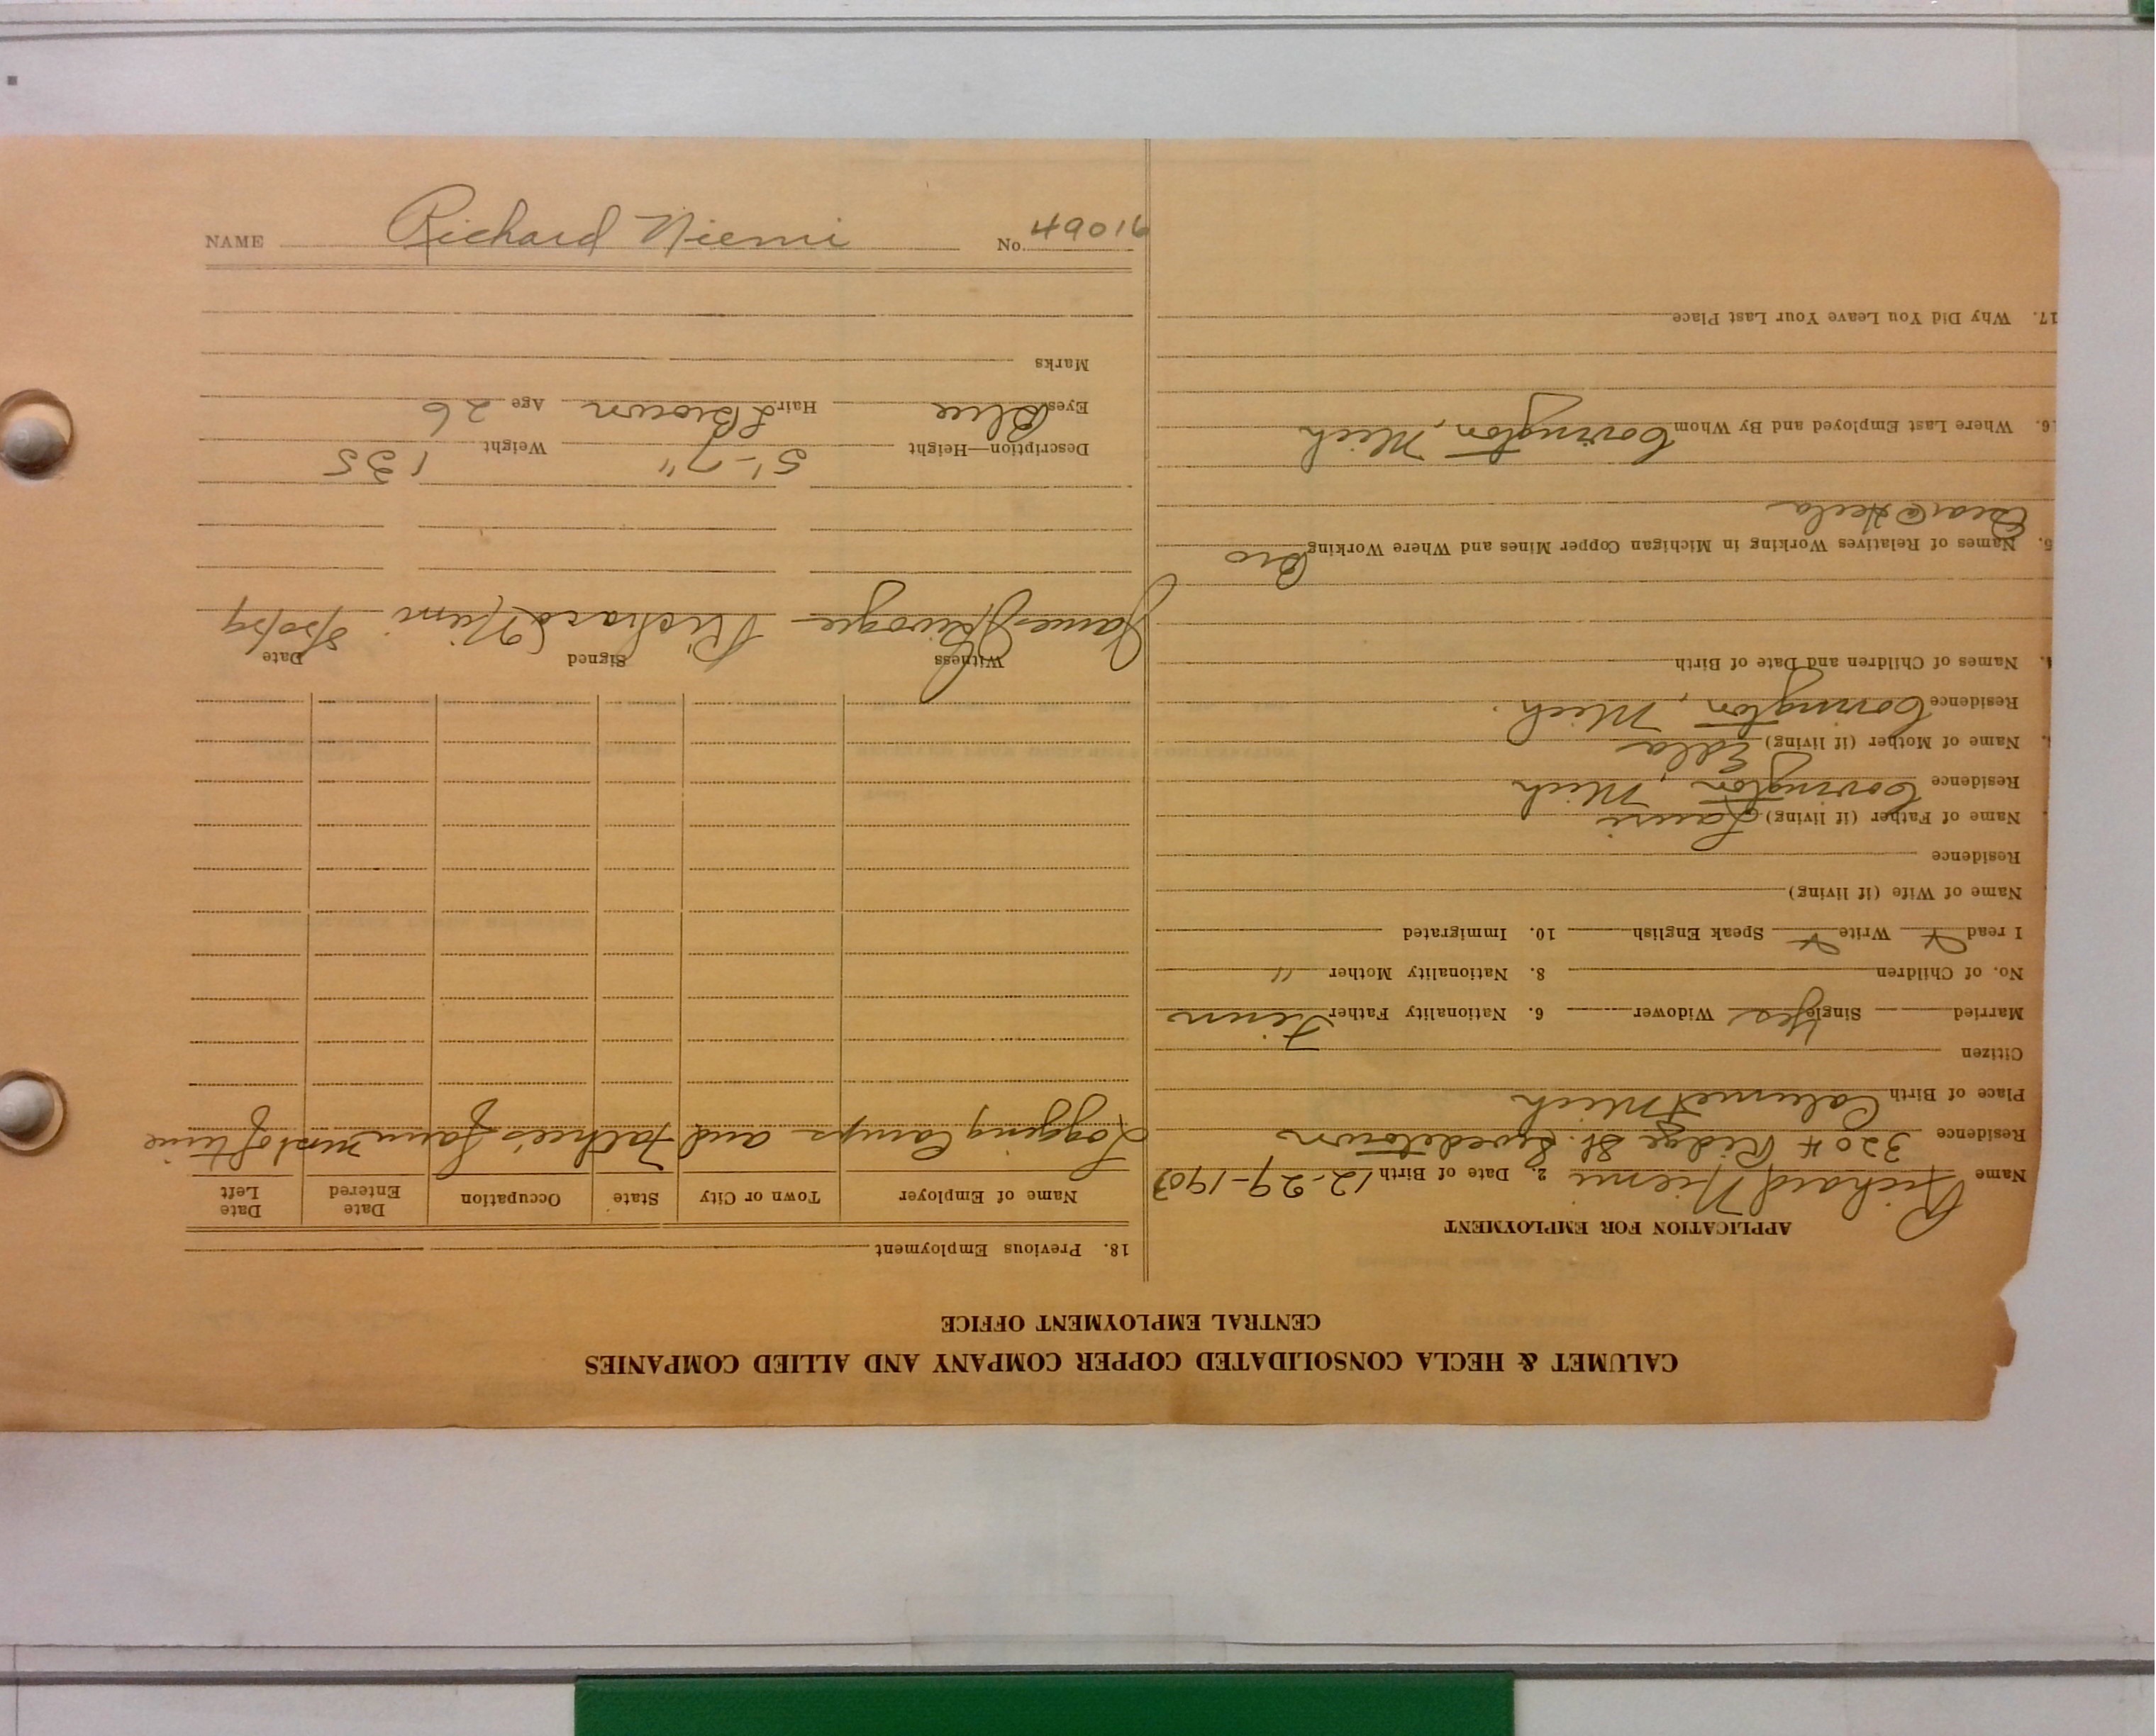 CALUMET & HECLA CONSOLIDATED COPPER COMPANY AND ALLIED COMPANIES
CENTRAL EMPLOYMENT OFFICE
APPLICATION FOR EMPLOYMENT
Name Richard Niemi 2. Date of Birth 12-29-190
Residence 3204 Ridge St. Swedetown
Place of Birth Calumet Mich
Citizen
Married Single Yes Widower 6. Nationality Father Finn
No. of Children 8. Nationality Mother "
I read Write Speak English 10. Immigrated
Name of Wife (if living)
Residence
Name of Father (if living) Lauri
Residence Covington, Mich
Name of Mother (if living) Edla
Residence Covington, Mich.
Names of Children and Date of Birth
Names of Relatives Working in Michigan Copper Mines and Where Working Bro
Hecla
6. Where Last Employed and By Whom Covington, Mich
17. Why Did You Leave Your Last Place
18. Previous Employment
Name of Employer Town or City State Occupation Date Entered Date Left
Logging Camps and Father's farm most of time
Witness Signed Date
James Richard Niemi
Description—Height 5'-7" Weight 135
Eyes Blue Hair L Brown Age 26
Marks
NAME Richard Niemi No. 49016